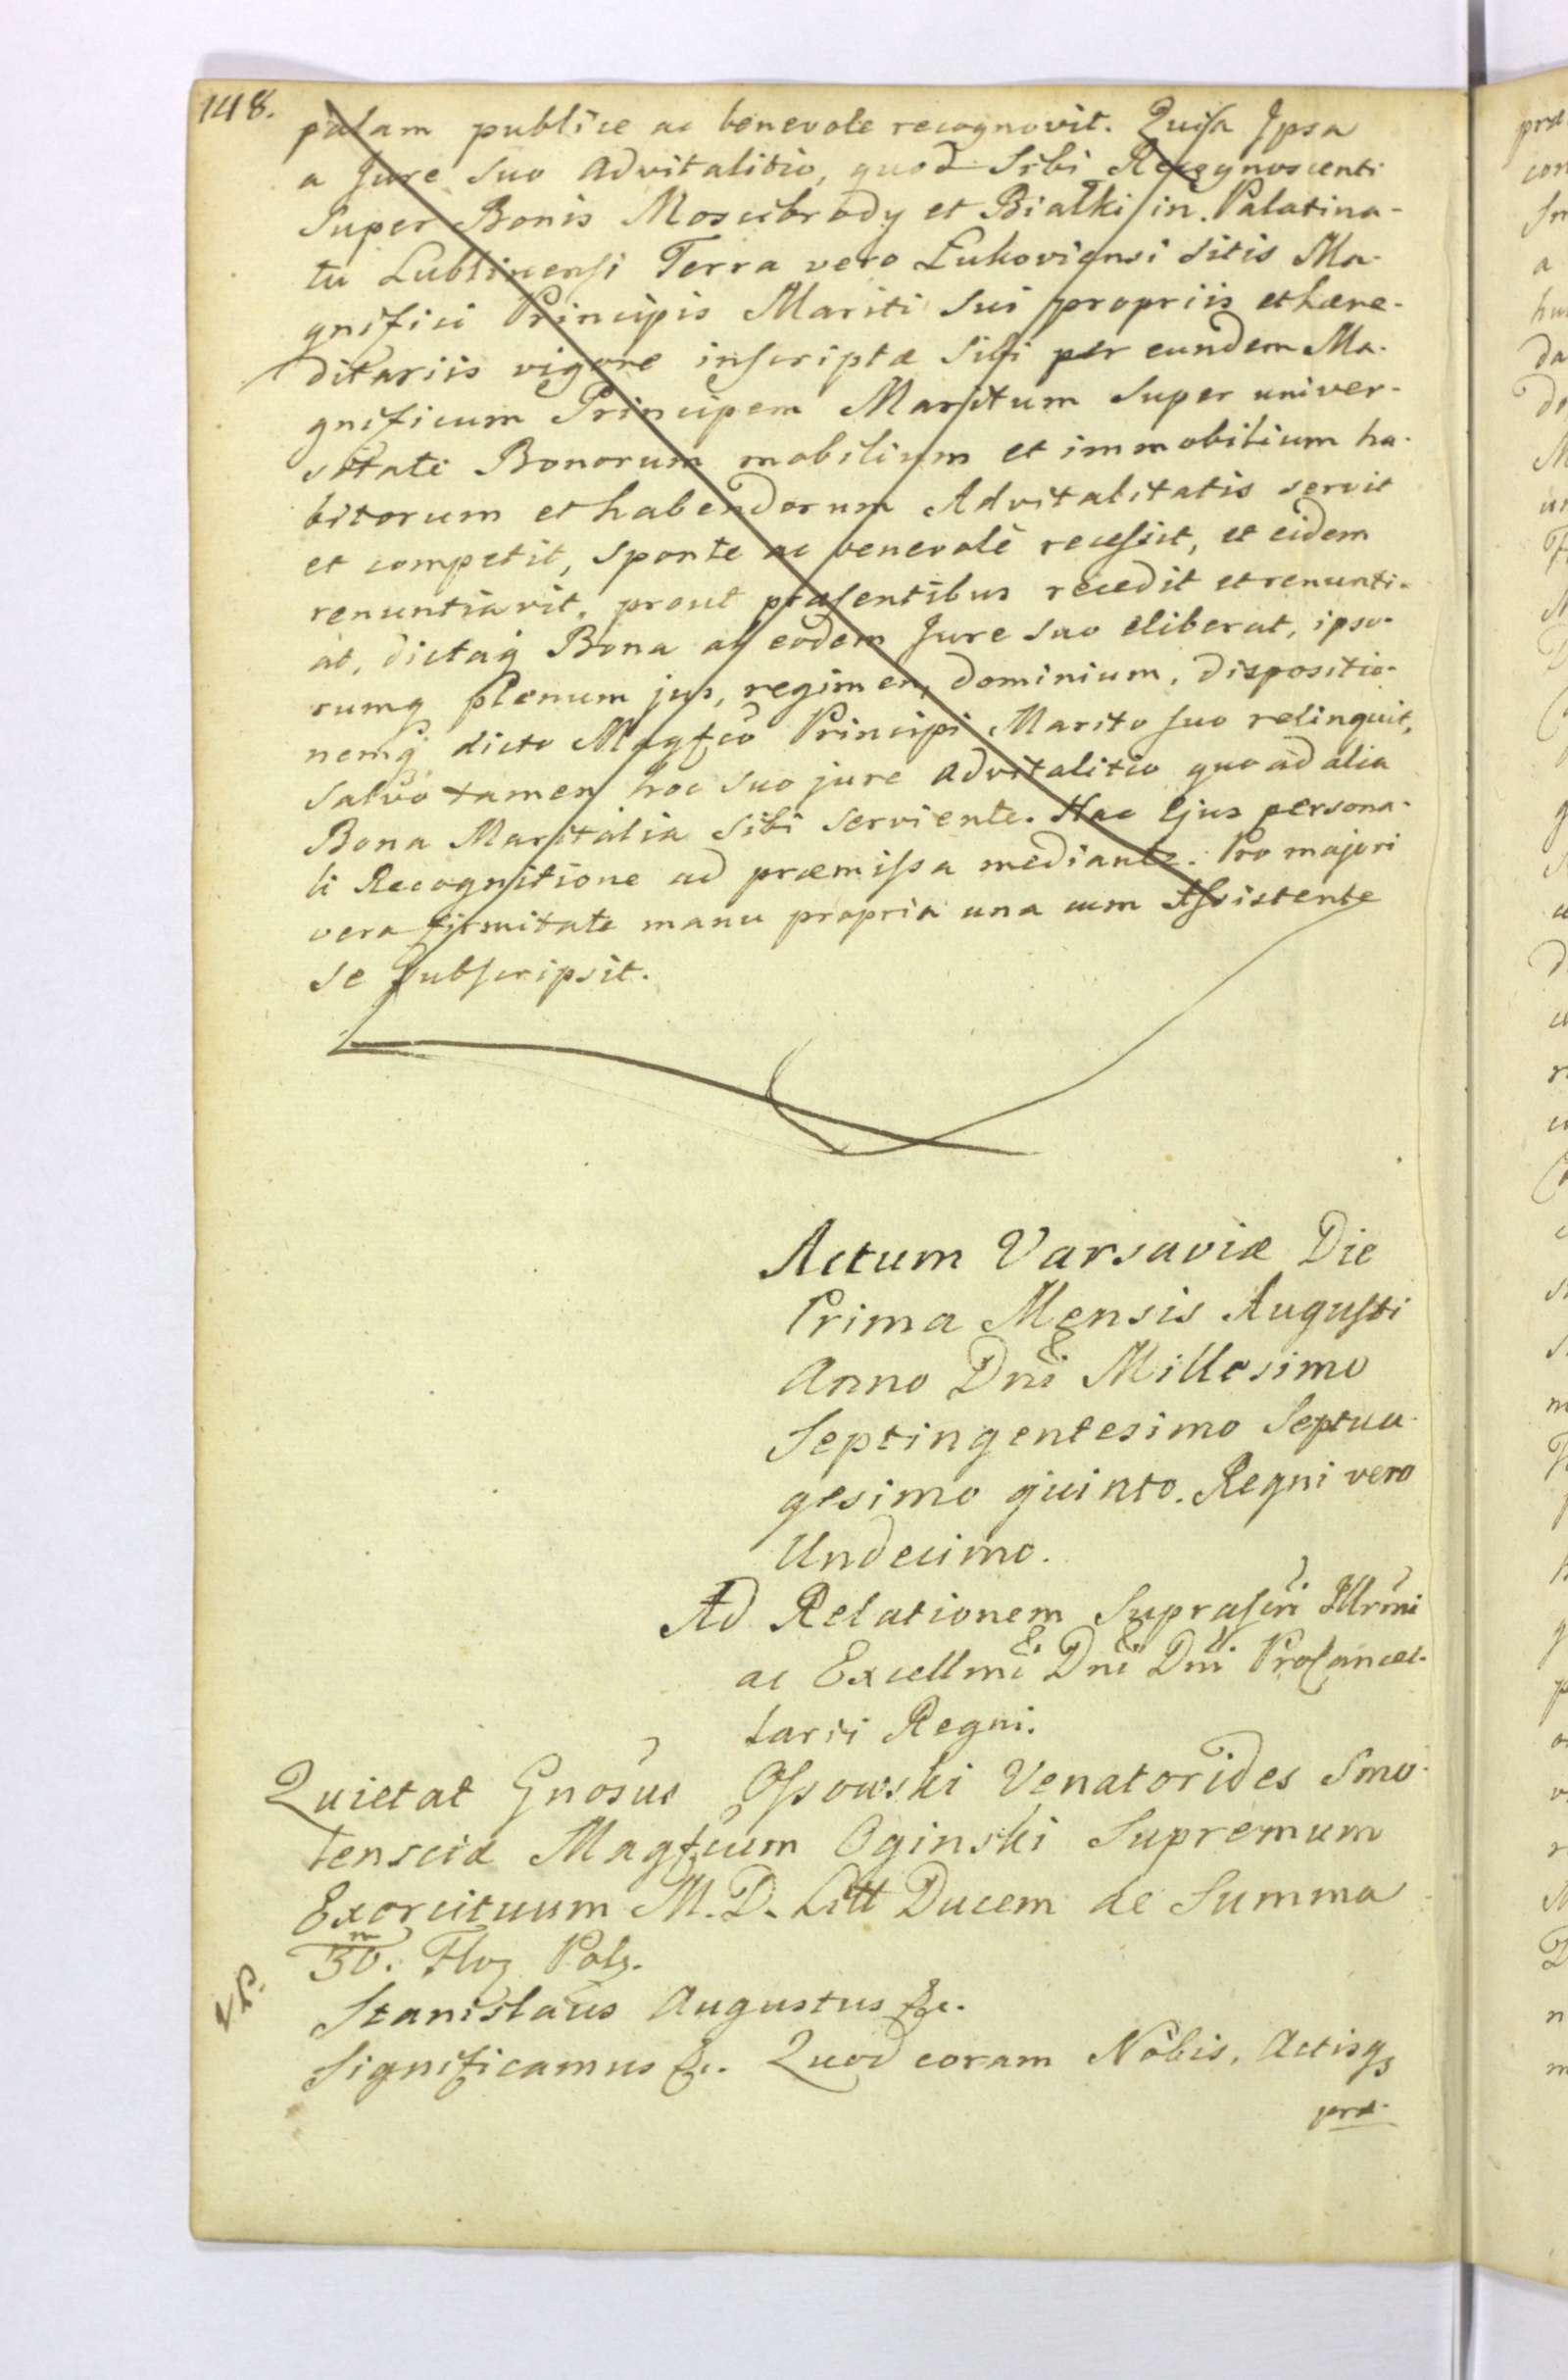 148.
palam publice ac benevole recognovit. Quia Ipsa
a Jure suo Advitalitio, quod Sibi Recognoscenti
super Bonis Moscibrody et Białki in Palatina-
tu Lublinensi Terra vero Łukoviensi sitis Ma-
gnifici Principis Mariti sui propriis et hære-
ditariis vigore inscriptæ sibi per eundem Ma-
gnificum Principem Maritum super univer-
sitate Bonorum mobilium et immobilium ha-
bitorum et habendorum Advitalitatis servit
et competit, sponte ac benevolè recessit, et eidem
renuntiavit, prout præsentibus recedit et renunti-
at, dictaq Bona ab eodem Jure suo eliberat, ipso-
rumq plenum jus, regimen, dominium, dispositio-
nemq dicto Magfco Principi Marito suo relinquit,
salvo tamen hoc suo jure advitalitio quo ad alia
Bona Maritalia sibi serviente. Hac Ejus persona-
li Recognitione ad præmissa mediante. Pro majori
vero firmitate manu propria una cum Assistente
se subscripsit.
Actum Varsaviæ Die
Prima Mensis Augusti
Anno Dni Millesimo
Septingentesimo Septua-
gesimo quinto. Regni vero
Undecimo.
Ad Relationem Suprascri Illrmi
ac Excellmi Dni Dni ProCancel-
larii Regni.
Quietat Gnosus Ossowski Venatorides Smo-
lensciæ Magfcum Oginski Supremum
Exercituum M. D. Litt Ducem de Summa
30. m Floq Polq.
Stanislaus Augustus &c.
Significamus &c. Quod coram Nobis, Actisq3
præ-